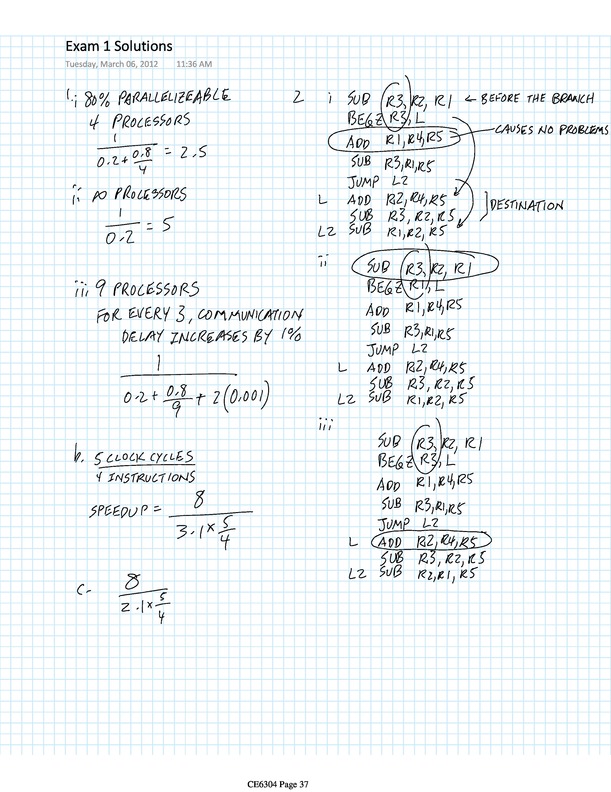 Exam 1 Solutions
Tuesday, March 06, 2012 11:36 AM
1. i 80% PARALLELIZEABLE
4 PROCESSORS
1
0.2 + 0.8/4 = 2.5
ii ∞ PROCESSORS
1
0.2 = 5
iii 9 PROCESSORS
FOR EVERY 3, COMMUNICATION
DELAY INCREASES BY 1%
1
0.2 + 0.8/9 + 2(0.001)
b. 5 CLOCK CYCLES
4 INSTRUCTIONS
SPEEDUP = 8
3.1 × 5/4
c. 8
2.1 × 5/4
2 i SUB R3, R2, R1 ← BEFORE THE BRANCH
BEGZ R3, L
ADD R1, R4, R5 CAUSES NO PROBLEMS
SUB R3, R1, R5
JUMP L2
L ADD R2, R4, R5
SUB R3, R2, R5 DESTINATION
L2 SUB R1, R2, R5
ii SUB R3, R2, R1
BEGZ R1, L
ADD R1, R4, R5
SUB R3, R1, R5
JUMP L2
L ADD R2, R4, R5
SUB R3, R2, R5
L2 SUB R1, R2, R5
iii
SUB R3, R2, R1
BEGZ R3, L
ADD R1, R4, R5
SUB R3, R1, R5
JUMP L2
L ADD R2, R4, R5
SUB R3, R2, R5
L2 SUB R2, R1, R5
CE6304 Page 37